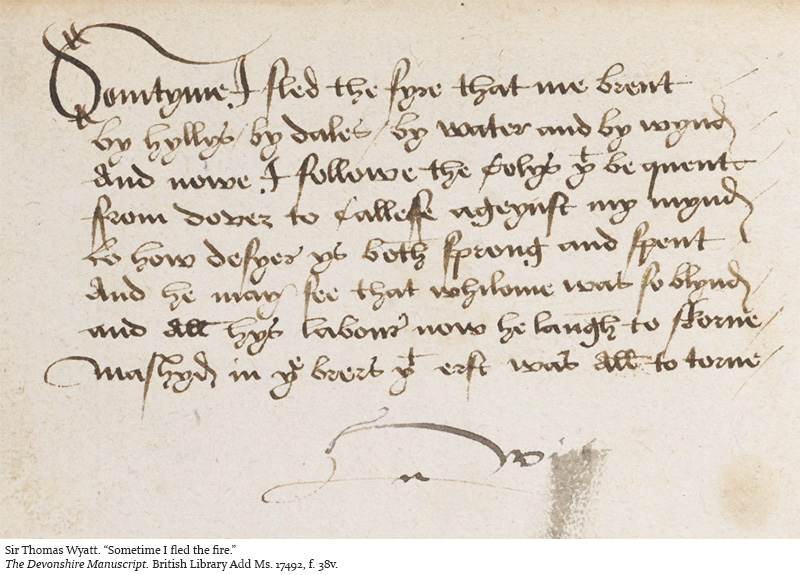 Somtyme I fled the fyre that me brent
by hyllys / by dales / by water and by wynd /
And nowe I followe the Colys yt be quent
from dover to Callesse ageynst my mynd /
lo how desyer ys both sprong and spent
And he may see that whilome was so blynd /
and all hys labour now he laugh to skorne /
mashyd in ye brers yt erst was all to torne /
Sir Thomas Wyatt. “Sometime I fled the fire.”
The Devonshire Manuscript. British Library Add Ms. 17492, f. 38v.